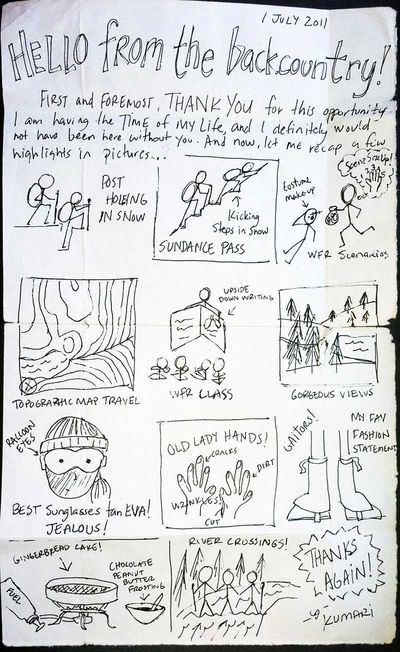 1 JULY 2011
HELLO from the backcountry!
FIRST and FOREMOST, THANK YOU for this opportunity
I am having the TIME of MY Life, and I definitely would
not have been here without you. And now, let me recap a few
highlights in pictures...
POST
HOLEING
IN SNOW
Kicking
Steps in Snow
SUNDANCE PASS
Scene Size Up!
Costume
makeup
WFR Scenarios
TOPOGRAPHIC MAP TRAVEL
UPSIDE
DOWN WRITING
WFR CLASS
GORGEOUS VIEWS
RACCOON
EYES
BEST Sunglasses tan EVA!
JEALOUS!
OLD LADY HANDS!
CRACKS
DIRT
WRINKLES!
CUT
GAITORS!
MY FAV
FASHION
STATEMENT
GINGERBREAD CAKE!
FUEL
CHOCOLATE
PEANUT
BUTTER
FROSTING
RIVER CROSSINGS!
THANKS
AGAIN!
KUMARI